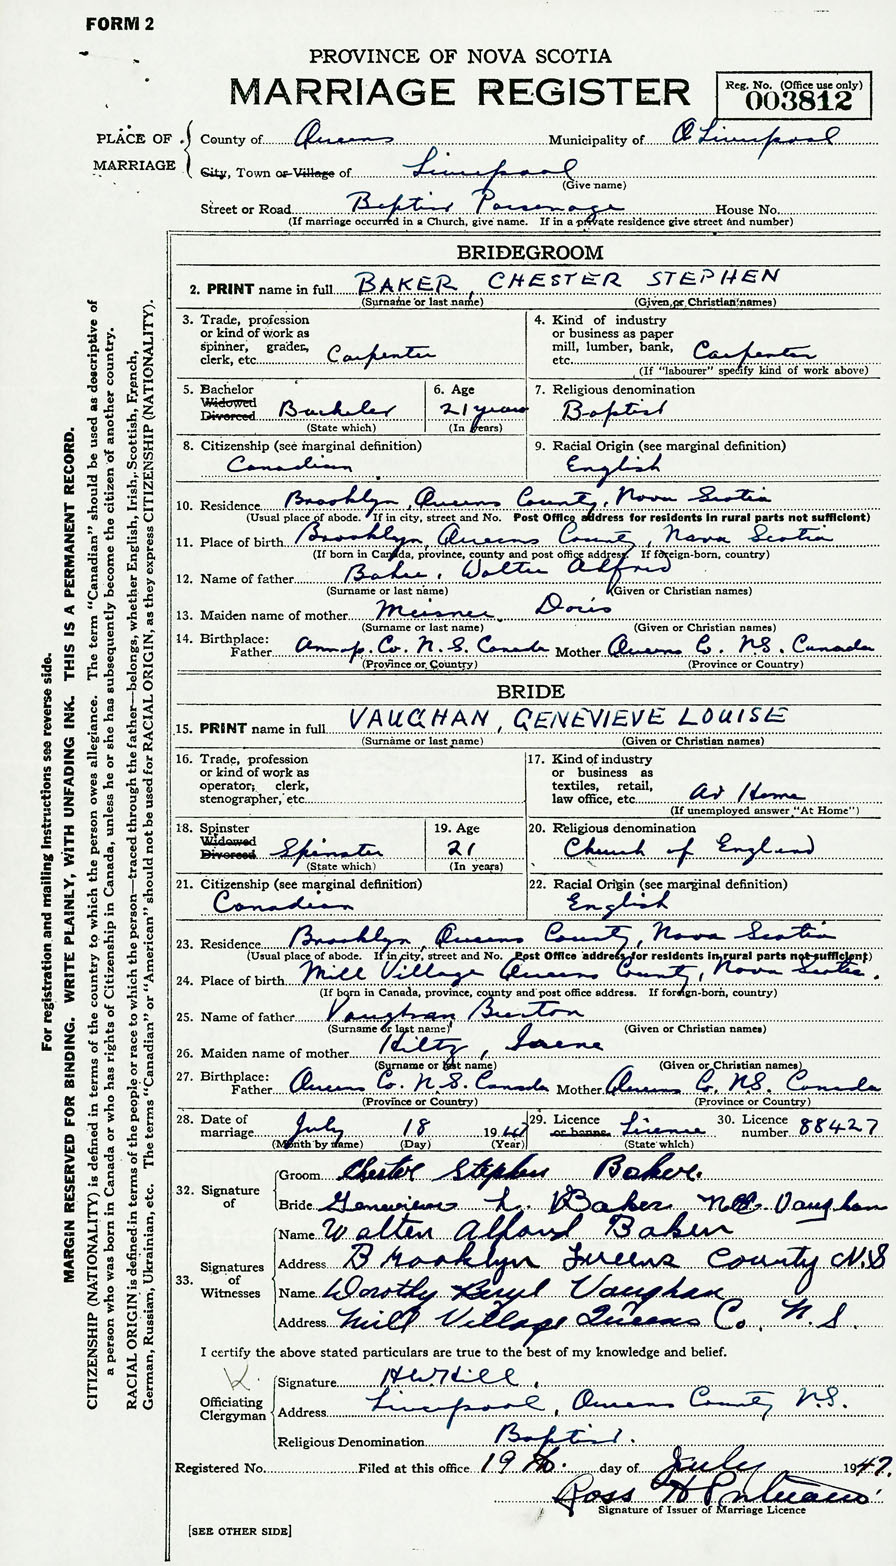 FORM 2
PROVINCE OF NOVA SCOTIA
MARRIAGE REGISTER
Reg. No. (Office use only)
003812
PLACE OF MARRIAGE
County of Queens Municipality of Liverpool
City, Town or Village of Liverpool
(Give name)
Street or Road Baptist Parsonage House No.
(If marriage occurred in a Church, give name. If in a private residence give street and number)
BRIDEGROOM
2. PRINT name in full BAKER, CHESTER STEPHEN
(Surname or last name) (Given or Christian names)
3. Trade, profession or kind of work as spinner, grader, clerk, etc. Carpenter
4. Kind of industry or business as paper mill, lumber, bank, etc. Carpenter
(If "labourer" specify kind of work above)
5. Bachelor Widowed Divorced Bachelor
(State which)
6. Age 21 years
(In years)
7. Religious denomination Baptist
8. Citizenship (see marginal definition) Canadian
9. Racial Origin (see marginal definition) English
10. Residence Brooklyn, Queens County, Nova Scotia
(Usual place of abode. If in city, street and No. Post Office address for residents in rural parts not sufficient)
11. Place of birth Brooklyn, Queens County, Nova Scotia
(If born in Canada, province, county and post office address. If foreign-born, country)
12. Name of father Baker, Walter Alford
(Surname or last name) (Given or Christian names)
13. Maiden name of mother Meisner, Doris
(Surname or last name) (Given or Christian names)
14. Birthplace: Father Annap. Co. N.S. Canada Mother Queens Co. N.S. Canada
(Province or Country) (Province or Country)
BRIDE
15. PRINT name in full VAUGHAN, GENEVIEVE LOUISE
(Surname or last name) (Given or Christian names)
16. Trade, profession or kind of work as operator, clerk, stenographer, etc.
17. Kind of industry or business as textiles, retail, law office, etc. At Home
(If unemployed answer "At Home")
18. Spinster Widowed Divorced Spinster
(State which)
19. Age 21
(In years)
20. Religious denomination Church of England
21. Citizenship (see marginal definition) Canadian
22. Racial Origin (see marginal definition) English
23. Residence Brooklyn, Queens County, Nova Scotia
(Usual place of abode. If in city, street and No. Post Office address for residents in rural parts not sufficient)
24. Place of birth Mill Village Queens County, Nova Scotia.
(If born in Canada, province, county and post office address. If foreign-born, country)
25. Name of father Vaughan Burton
(Surname or last name) (Given or Christian names)
26. Maiden name of mother Hiltz, Irene
(Surname or last name) (Given or Christian names)
27. Birthplace: Father Queens Co. N.S. Canada Mother Queens Co. N.S. Canada
(Province or Country) (Province or Country)
28. Date of marriage July 18 19
(Month by name) (Day) (Year)
29. Licence or banns License
(State which)
30. Licence number 88427
32. Signature of
Groom Chester Stephen Baker.
Bride Genevieve L. Baker nee. Vaughan
33. Signatures of Witnesses
Name Walter Alford Baker
Address Brooklyn Queens County N.S
Name Dorothy Beryl Vaughan
Address Mill Village Queens Co. N.S.
I certify the above stated particulars are true to the best of my knowledge and belief.
Officiating Clergyman
Signature
Address Liverpool, Queens County N.S.
Religious Denomination Baptist.
Registered No. Filed at this office 19 th. day of July 1947.
Ross H
Signature of Issuer of Marriage Licence
[SEE OTHER SIDE]
For registration and mailing instructions see reverse side.
MARGIN RESERVED FOR BINDING. WRITE PLAINLY, WITH UNFADING INK. THIS IS A PERMANENT RECORD.
CITIZENSHIP (NATIONALITY) is defined in terms of the country to which the person owes allegiance. The term "Canadian" should be used as descriptive of
a person who was born in Canada or who has rights of Citizenship in Canada, unless he or she has subsequently become the citizen of another country.
RACIAL ORIGIN is defined in terms of the people or race to which the person—traced through the father—belongs, whether English, Irish, Scottish, French,
German, Russian, Ukrainian, etc. The terms "Canadian" or "American" should not be used for RACIAL ORIGIN, as they express CITIZENSHIP (NATIONALITY).